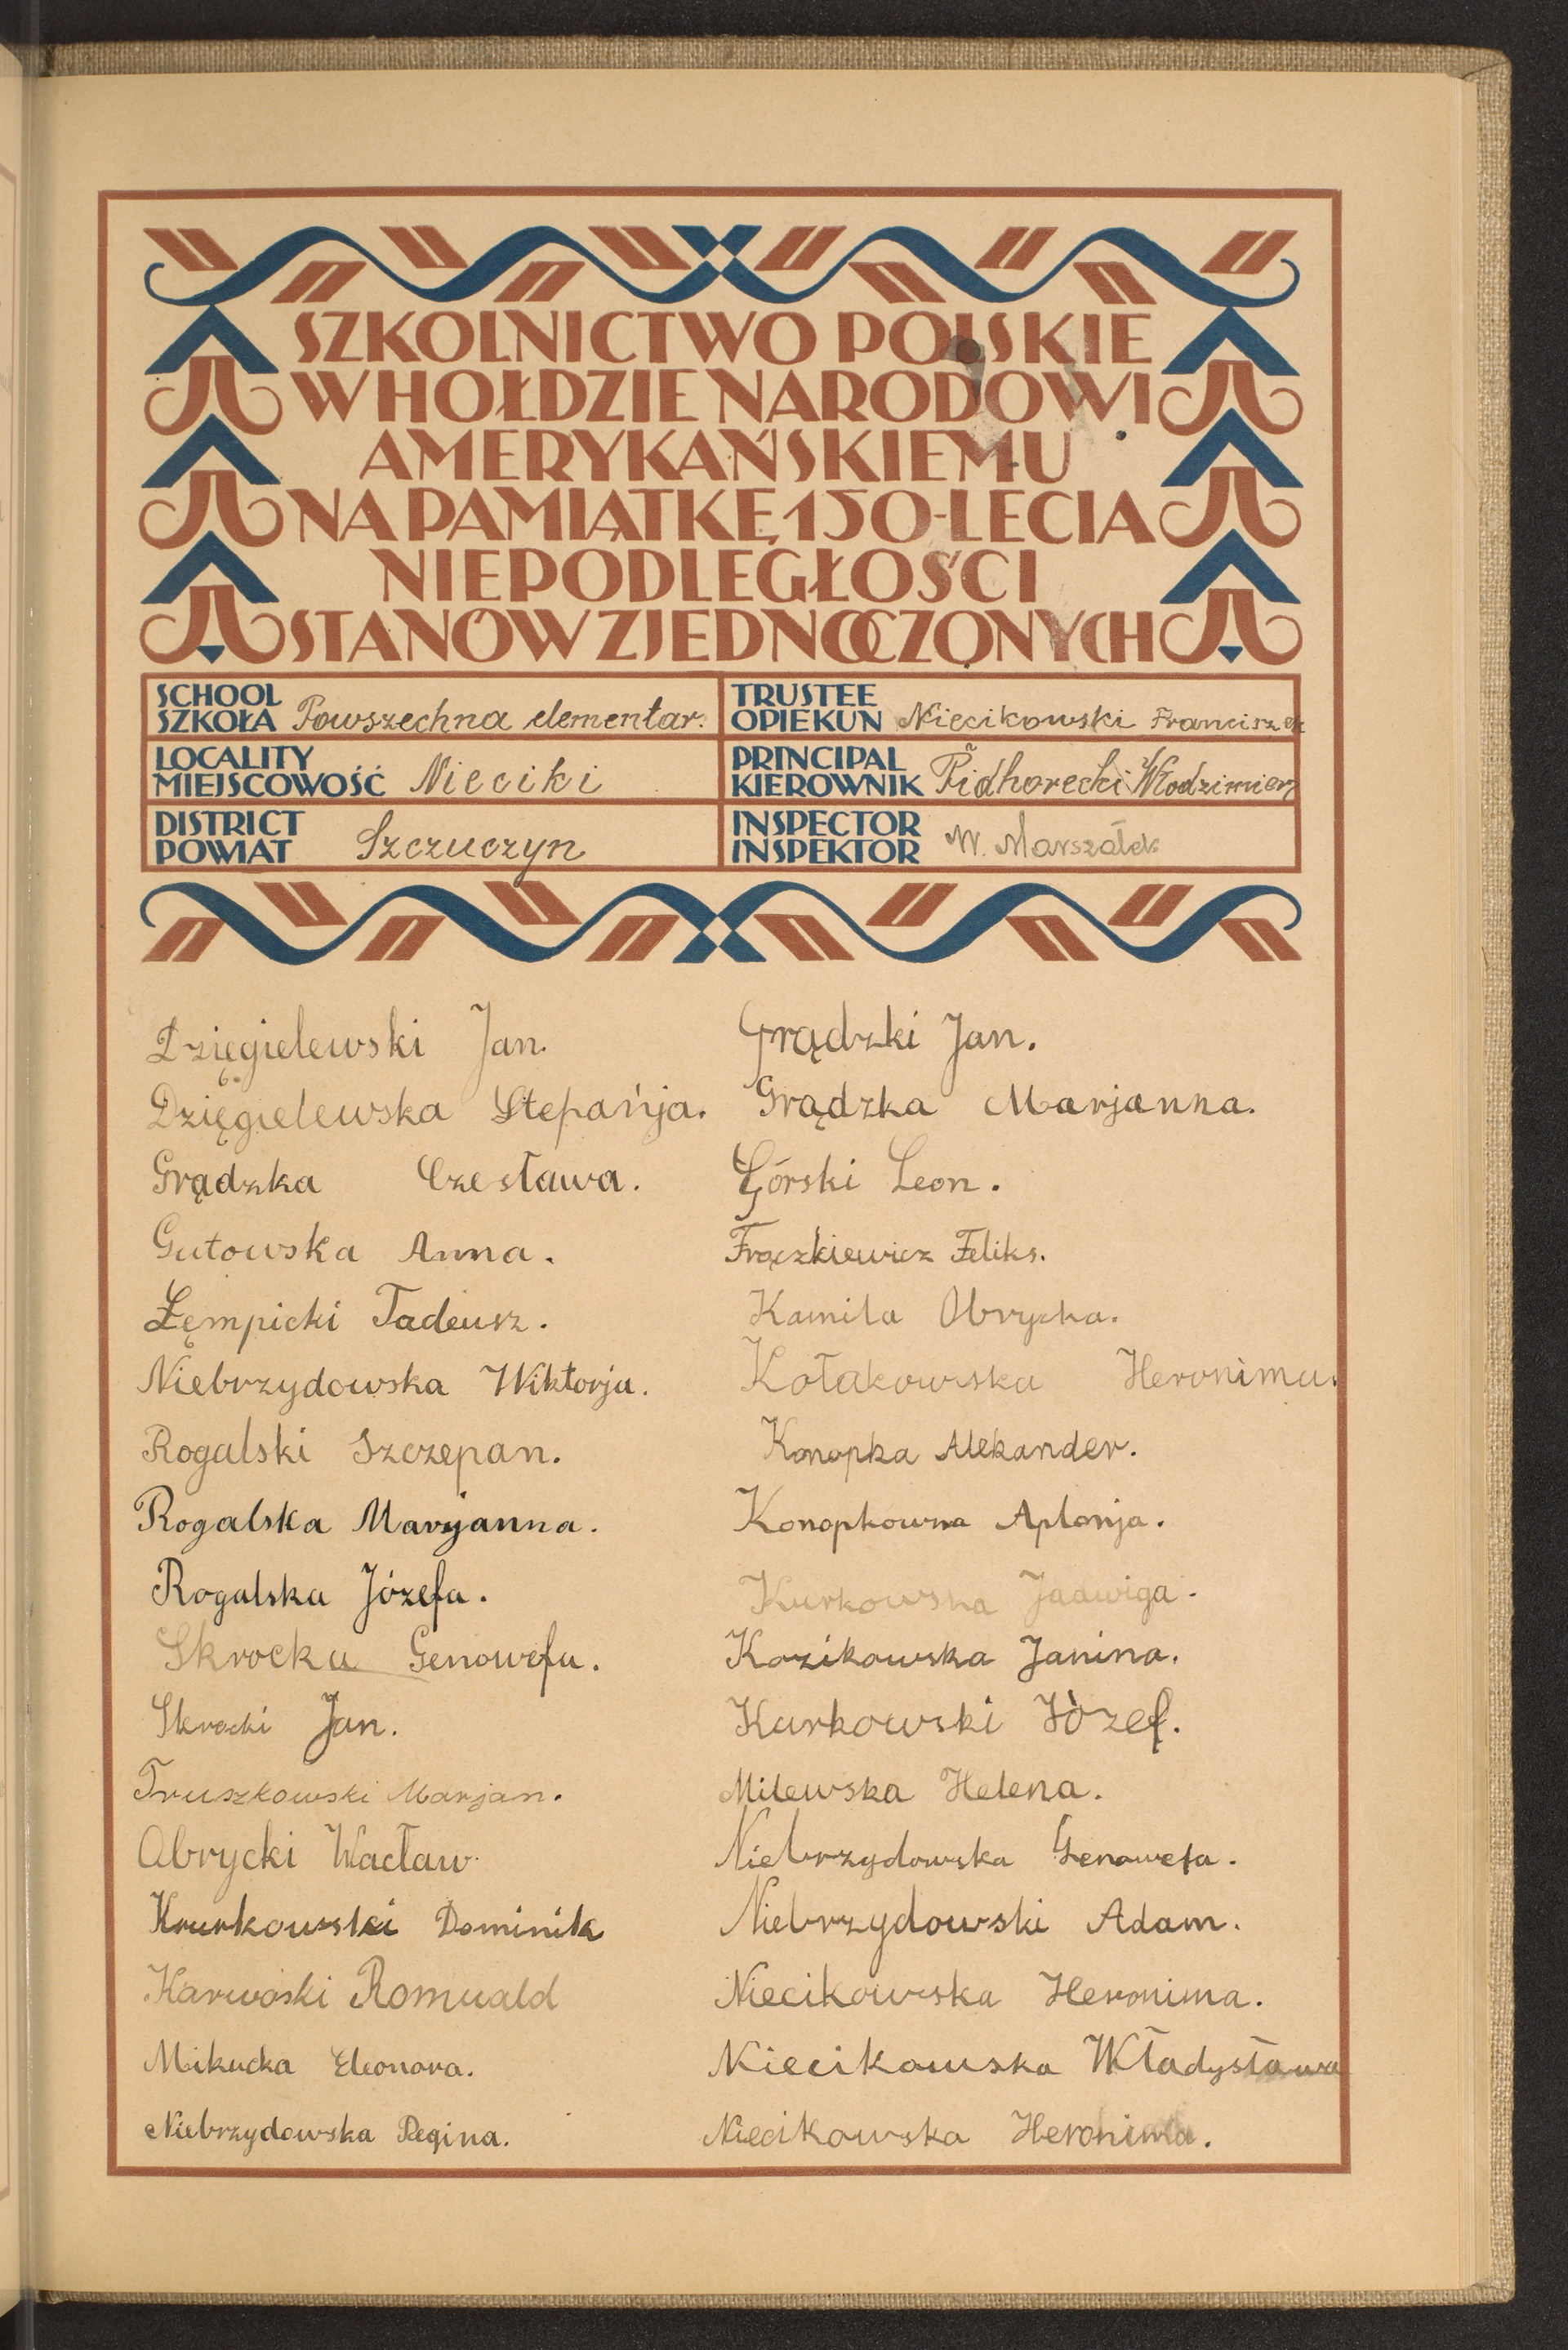 SZKOLNICTWO POLSKIE
W HOŁDZIE NARODOWI
AMERYKAŃSKIEMU
NA PAMIĄTKĘ 150-LECIA
NIEPODLEGŁOŚCI
STANÓW ZJEDNOCZONYCH
SCHOOL
SZKOŁA Powszechna elementar.
TRUSTEE
OPIEKUN Niecikowski Franciszek
LOCALITY
MIEJSCOWOŚĆ Nieciki
PRINCIPAL
KIEROWNIK Pidhorecki Włodzimierz
DISTRICT
POWIAT Szczuczyn
INSPECTOR
INSPEKTOR W. Marszałek
Dzięgielewski Jan.
Dzięgielewska Stepańja.
Grądzka Czesława.
Gutowska Anna.
Łempicki Tadeusz.
Niebrzydowska Wiktorja.
Rogalski Szczepan.
Rogalska Maryjanna.
Rogalska Józefa.
Skrocka Genowefa.
Skrocki Jan.
Truszkowski Marjan.
Obrycki Wacław.
Krurkowski Dominik
Karwoski Romuald
Mikucka Eleonora.
Niebrzydowska Regina.
Grądzki Jan.
Grądzka Marjanna.
Górski Leon.
Frączkiewicz Feliks.
Kamila Obrycka.
Kołakowska Heronima.
Konopka Alekander.
Konopkowna Aplonja.
Kurkowska Jadwiga.
Kozikowska Janina.
Kurkowski Józef.
Milewska Helena.
Niebrzydowska Genowefa.
Niebrzydowski Adam.
Niecikowska Heronima.
Niecikowska Władysława
Niecikowska Heronima.